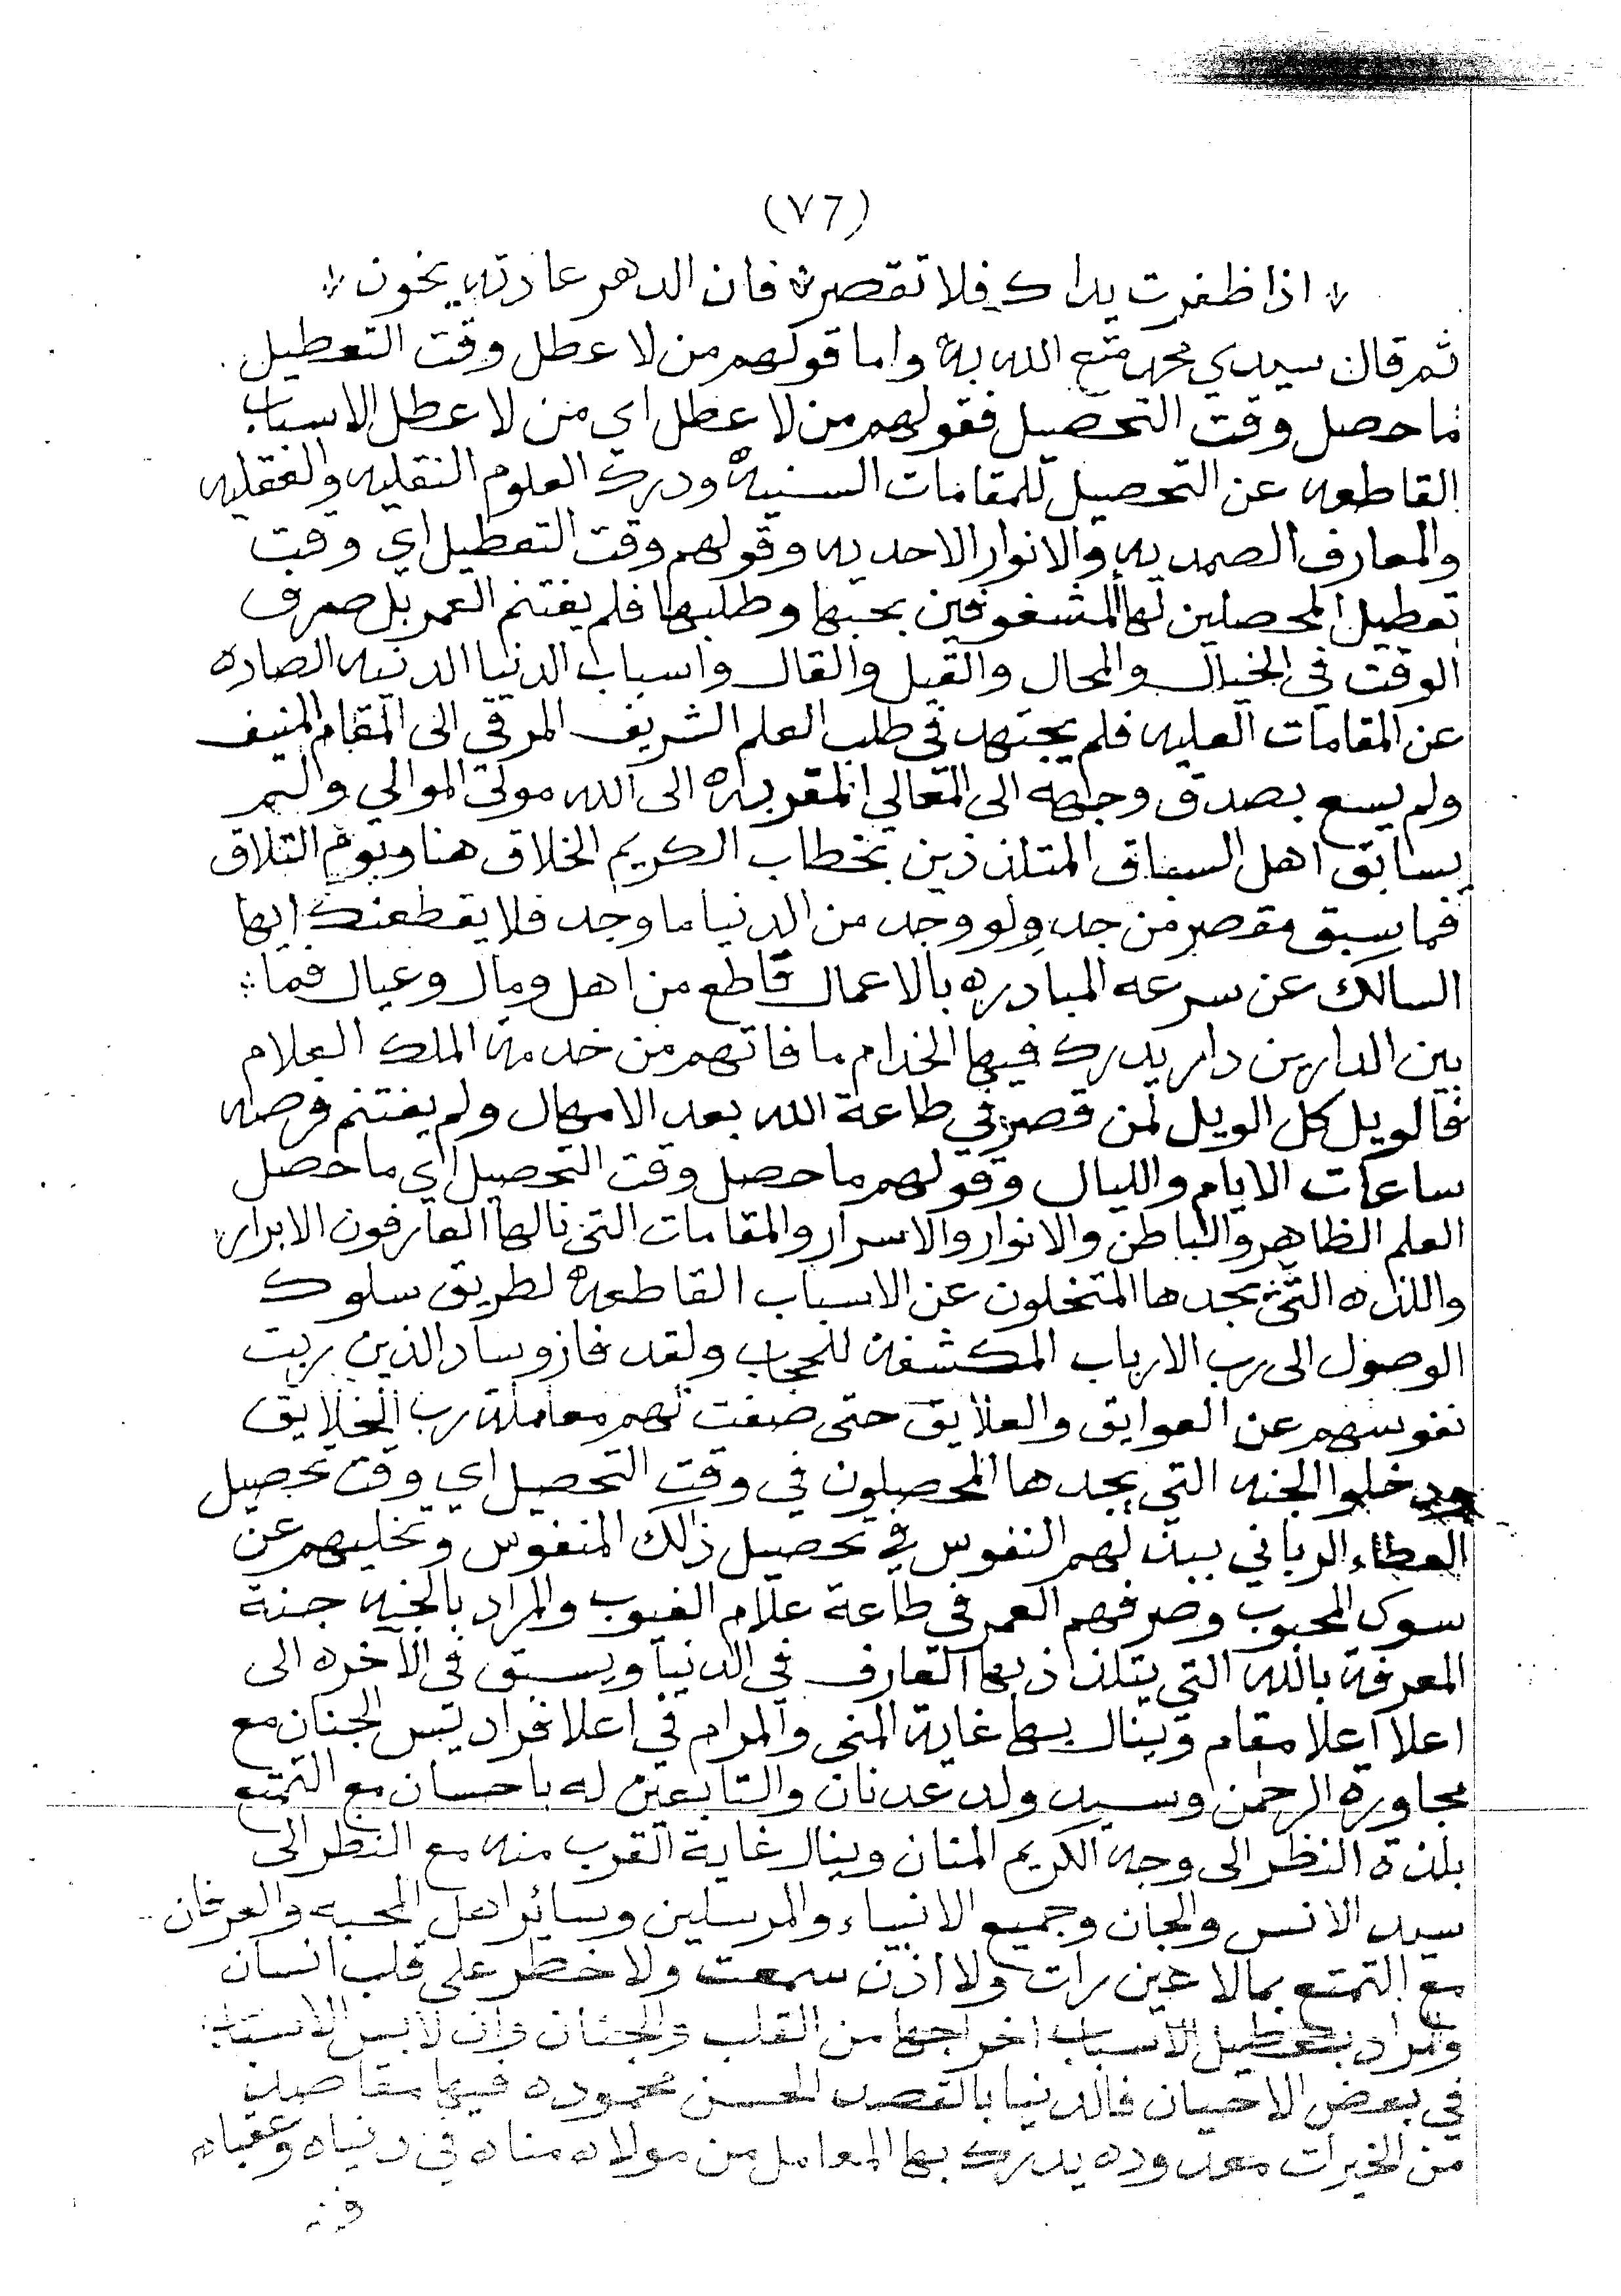 (٧٦)
اذا ظفرت يداك فلا تقصر ۞ فان الدهر عادته يخون
ثم قال سيدي محمد متع الله به واما قولهم من لا عطل وقت التعطيل
ما حصل وقت التحصيل فقولهم من لا عطل اي من لا عطل الاسباب
القاطعه عن التحصيل للمقامات السنيه ودرك العلوم النقليه والعقليه
والمعارف الصمديه والانوار الاحديه وقولهم وقت التعطيل اي وقت
تعطيل المحصلين لها المشغوفين بحبها وطلبها فلم يغتنم العمر بل صرف
الوقت في الخيال والمحال والقيل والقال واسباب الدنيا الدنيه الصاده
عن المقامات العليه فلم يجتهد في طلب العلم الشريف المرقي الى المقام المنيف
ولم يسع بصدق وجهه الى المعالي المقربه الى الله مولى الموالي ولم
يسابق اهل السباق المتلذذين بخطاب الكريم الخلاق هنا ويوم التلاق
فما سبق مقصر من جد ولو وجد من الدنيا ما وجد فلا يقطعنك ايها
السالك عن سرعه المبادره بالاعمال قاطع من اهل ومال وعيال فما
بين الدارين دار يدرك فيها الخدام ما فاتهم من خدمة الملك العلام
فالويل كل الويل لمن قصر في طاعة الله بعد الامهال ولم يغتنم فرصه
ساعات الايام والليال وقولهم ما حصل وقت التحصيل اي ما حصل
العلم الظاهر والباطن والانوار والاسرار والمقامات التي نالها العارفون الابرار
واللذه التي يجدها المتخلون عن الاسباب القاطعه لطريق سلوك
الوصول الى رب الارباب المكشفة للحجاب ولقد فاز وساد الذين ربت
نفوسهم عن العوايق والعلايق حتى صفت لهم معاملة رب الخلايق
ودخلوا الجنه التي يجدها المحصلون في وقت التحصيل اي وقت تحصيل
العطاء الرباني ببذلهم النفوس في تحصيل ذلك المنفوس وتخليهم عن
سوى المحبوب وصرفهم العمر في طاعة علام الغيوب والمراد بالجنه جنة
المعرفة بالله التي يتلذذ بها العارف في الدنيا ويسبق في الآخره الى
اعلا اعلا مقام وينال بها غاية المنى والمرام في اعلا فراديس الجنان مع
مجاورة الرحمن وسيد ولد عدنان والتابعين له باحسان مع التمتع
بلذة النظر الى وجه الكريم المنان وينال غاية القرب منه مع النظر الى
سيد الانس والجان وجميع الانبياء والمرسلين وسائر اهل المحبه والعرفان
مع التمتع بما لا عين رات ولا اذن سمعت ولا خطر على قلب انسان
والمراد بتعطيل الاسباب اخراجها من القلب والجنان وان لابس الاسباب
في بعض الاحيان فالدنيا بالقصد الحسن محموده فيها مقاصد
من الخيرات معدوده يدرك بها المعامل من مولاه مناه في دنياه وعقباه